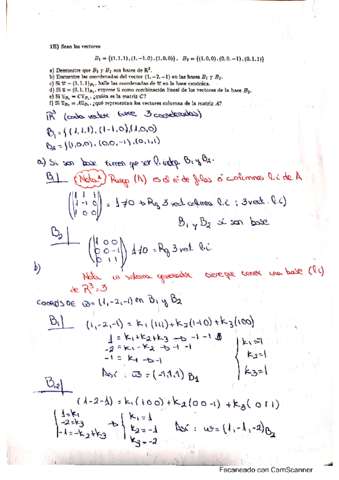 1E) Sean los vectores
B₁ = {(1,1,1), (1,−1,0), (1,0,0)}, B₂ = {(1,0,0), (0,0,−1), (0,1,1)}
a) Demuestre que B₁ y B₂ son bases de R³.
b) Encuentre las coordenadas del vector (1,−2,−1) en las bases B₁ y B₂.
c) Si u̅ = (1,1,1)B₁, halle las coordenadas de u̅ en la base canónica.
d) Si u̅ = (0,1,1)B₂, exprese u̅ como combinación lineal de los vectores de la base B₂.
e) Si u̅B₁ = Cu̅B₂, ¿cuál es la matriz C?
f) Si u̅B₁ = Au̅B₂, ¿qué representan los vectores columna de la matriz A?
R³ (cada vector tiene 3 coordenadas)
B₁ = {(1,1,1), (1-1,0), (1,0,0)
B₂ = {(1,0,0), (0,0,-1), (0,1,1)
a) Si son base tienen que ser l. indep. B₁ y B₂.
B₁ Nota* Rango (A) es el nº de filas ó columnas l.i de A
(1 1 1
1 -1 0
1 0 0) = 1≠0 → Rg 3 vect columna l.i ; 3 vect. l.i
B₁ y B₂ si son base
B₂ (1 0 0
0 0 -1
0 1 1) 1≠0 → Rg 3 vect l.i.
b)
Nota un sistema generador tiene que tener una base (l.i)
de R³ = 3
COORDS DE w̅ = (1,-2,-1) en B₁ y B₂
B₁ (1,-2,-1) = k₁(111) + k₂(1-10) + k₃(100)
1 = k₁+k₂+k₃
-2 = k₁-k₂
-1 = k₁
k₁=-1
k₂=1
k₃=1
Así: w̅ = (-1,1,1)B₁
B₂ (1-2-1) = k₁(100) + k₂(00-1) + k₃(011)
1=k₁
-2=k₃
-1=-k₂+k₃
k₁=1
k₂=-1
k₃=-2
Así: w=(1,-1,-2)B₂
Escaneado con CamScanner